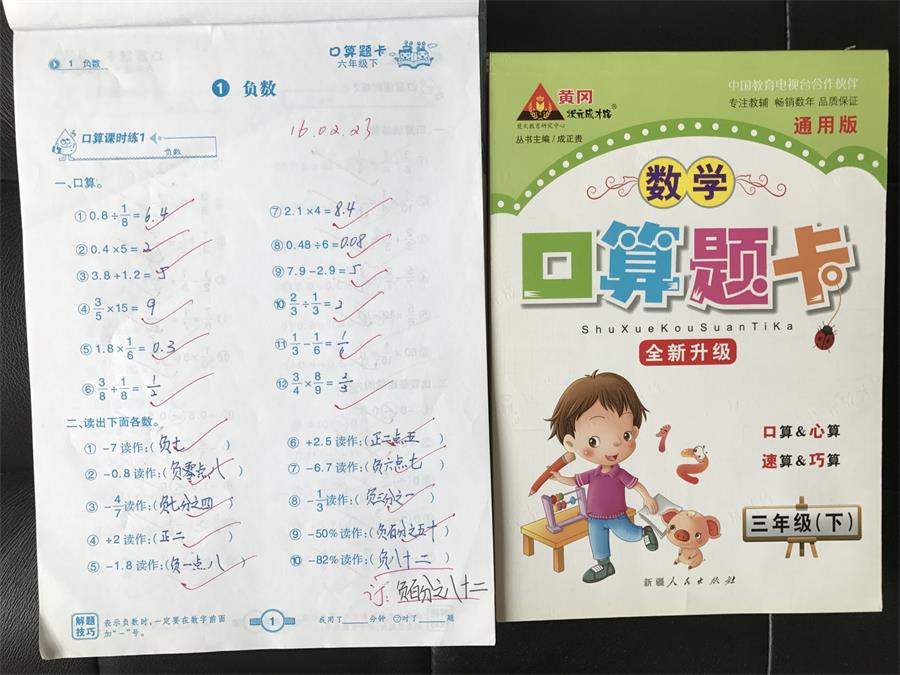 1 负数
口算题卡
六年级下
1 负数
口算课时练1
负数
16.02.23
一、口算。
①0.8÷1/8=6.4
②0.4×5=2
③3.8+1.2=5
④3/5×15=9
⑤1.8×1/6=0.3
⑥3/8+1/8=1/2
⑦2.1×4=8.4
⑧0.48÷6=0.08
⑨7.9-2.9=5
⑩2/3÷1/3=2
⑪1/3-1/6=1/6
⑫3/4×8/9=2/3
二、读出下面各数。
①-7读作:(负七)
②-0.8读作:(负零点八)
③-4/7读作:(负七分之四)
④+2读作:(正二)
⑤-1.8读作:(负一点八)
⑥+2.5读作:(正二点五)
⑦-6.7读作:(负六点七)
⑧-1/3读作:(负三分之一)
⑨-50%读作:(负百分之五十)
⑩-82%读作:(负八十二)
订:负百分之八十二
解题技巧
表示负数时,一定要在数字前面
加“-”号。
1
我用了____分钟 对了____题
中国教育电视台合作伙伴
专注教辅 畅销数年 品质保证
通用版
黄冈
状元成才路®
楚天教育研究中心
丛书主编/成正贵
数学
口算题卡
ShuXueKouSuanTiKa
全新升级
1 2
口算&心算
速算&巧算
三年级(下)
新疆人民出版社